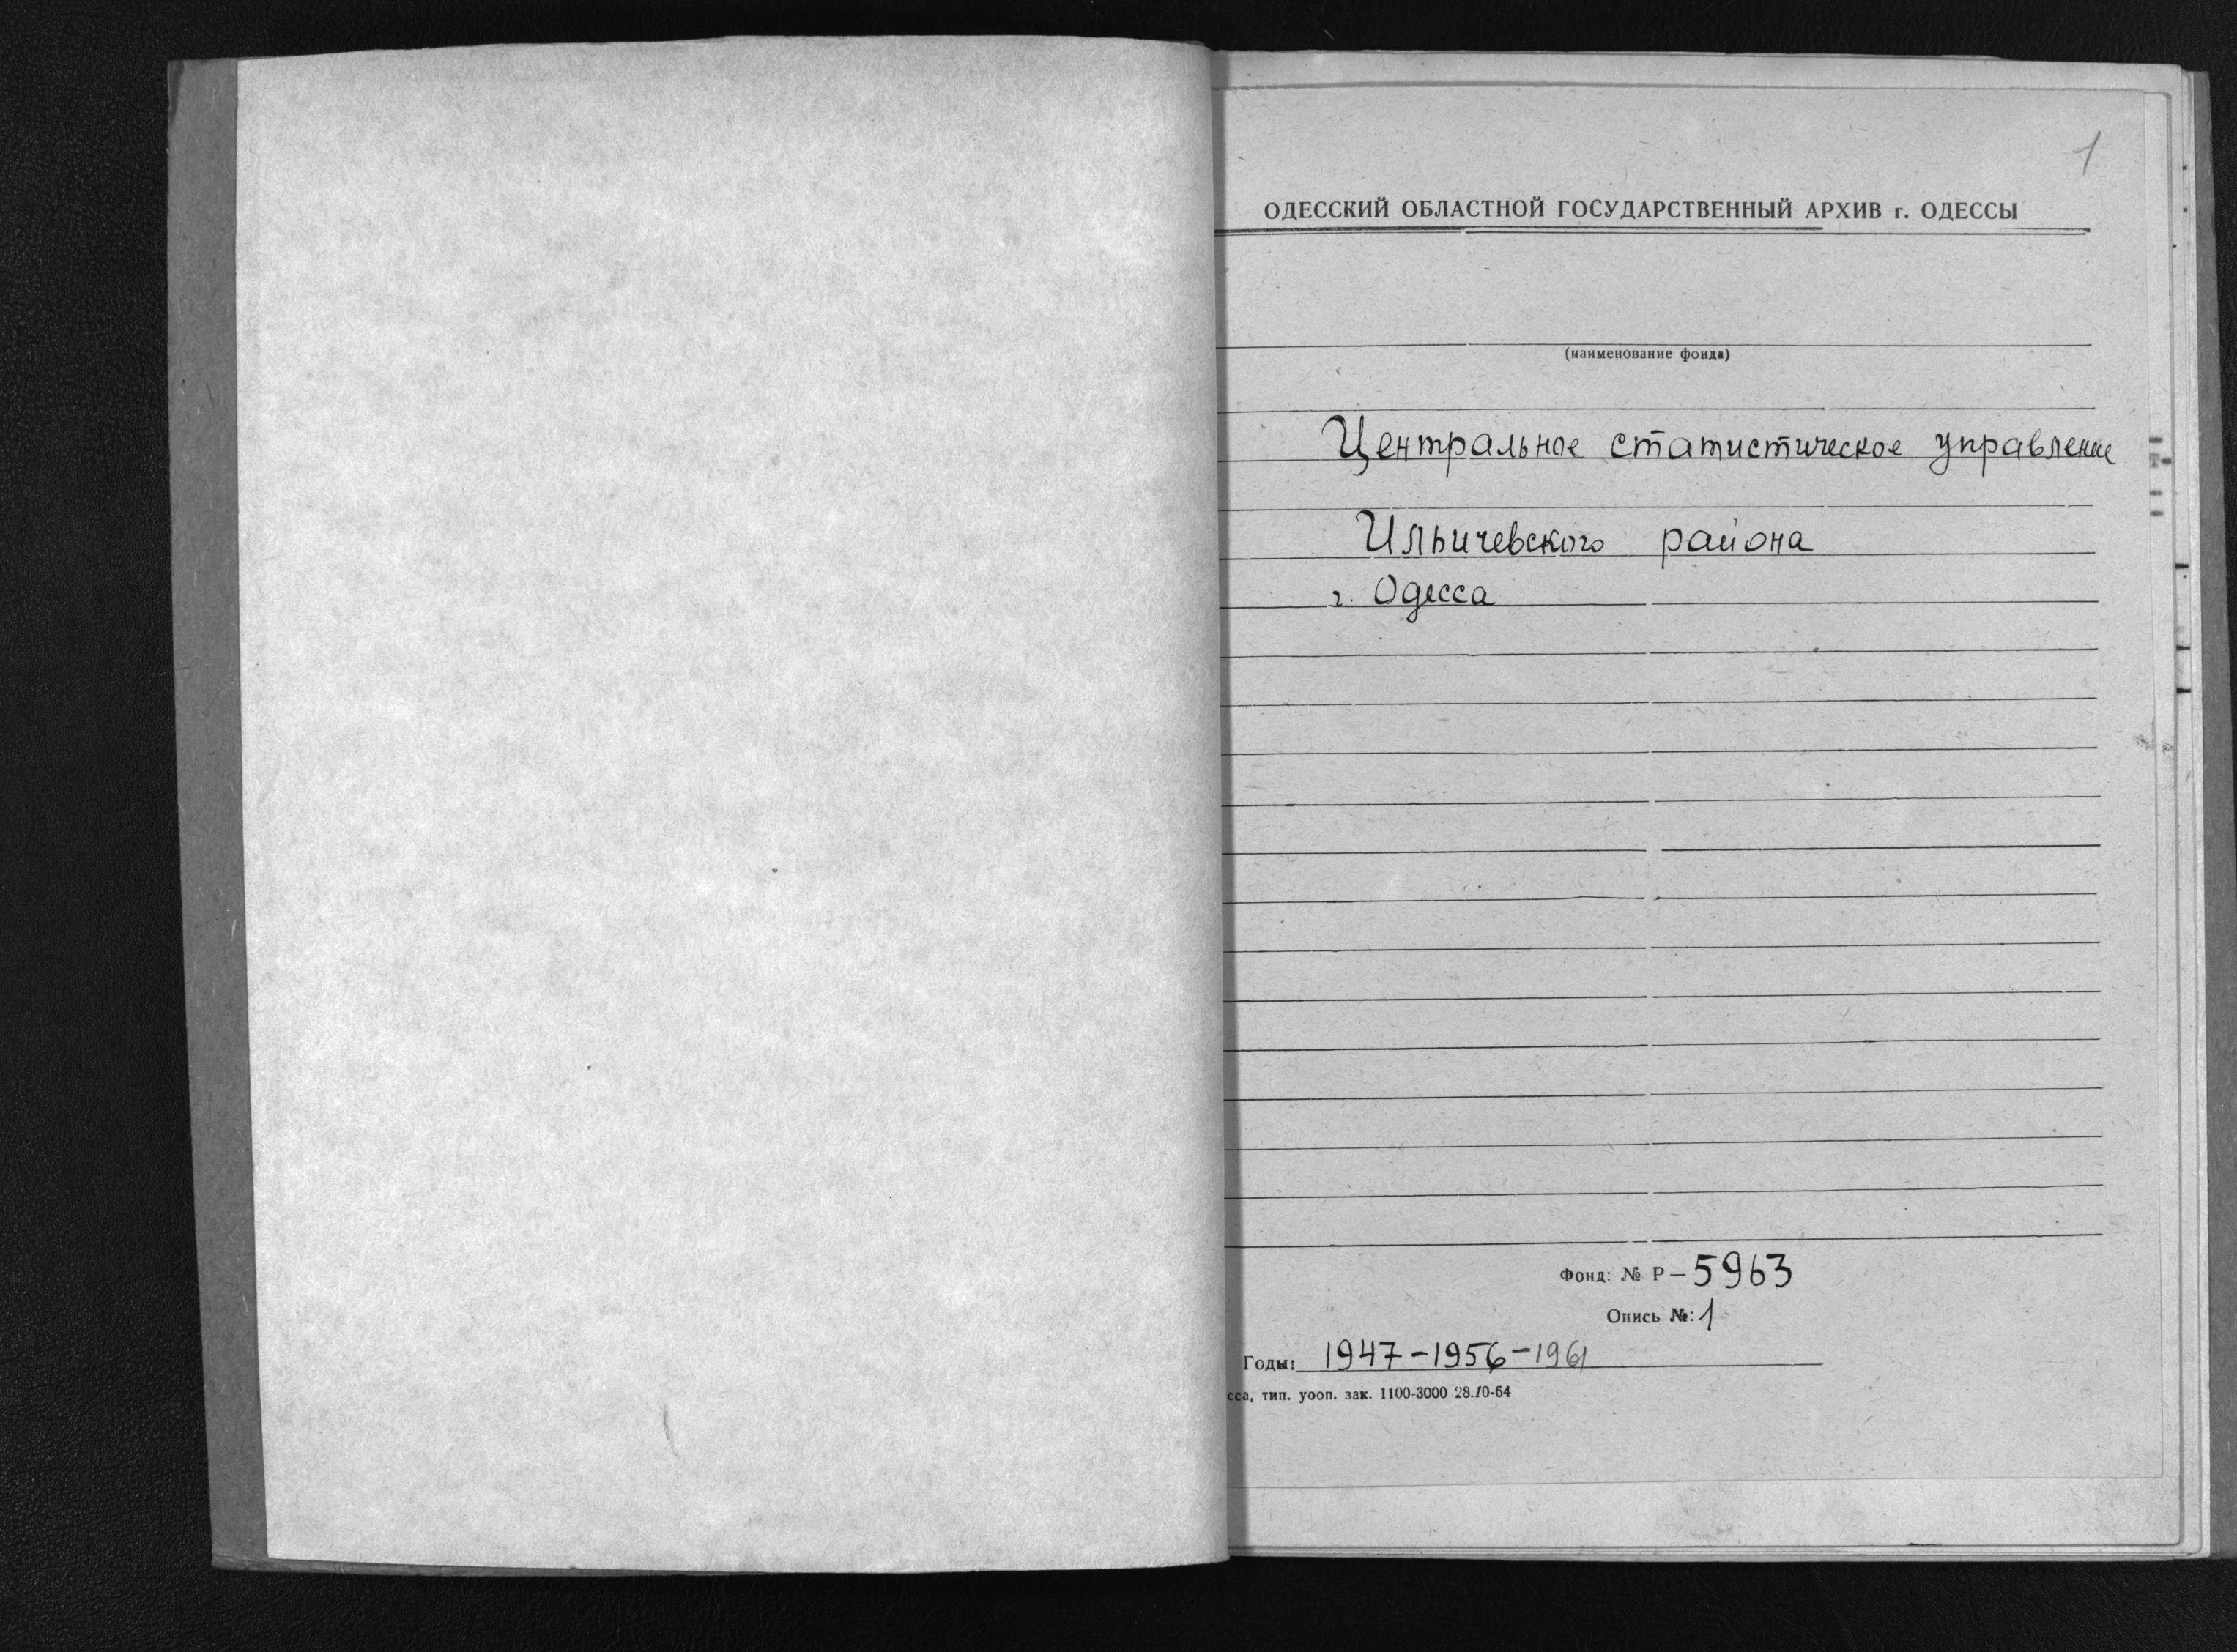 1
ОДЕССКИЙ ОБЛАСТНОЙ ГОСУДАРСТВЕННЫЙ АРХИВ г. ОДЕССЫ
(наименование фонда)
Центральное статистическое управление
Ильичевского района
г. Одесса
Фонд: № Р-5963
Опись №: 1
Годы: 1947-1956-1961
сса, тип. уооп. зак. 1100-3000 28.10-64